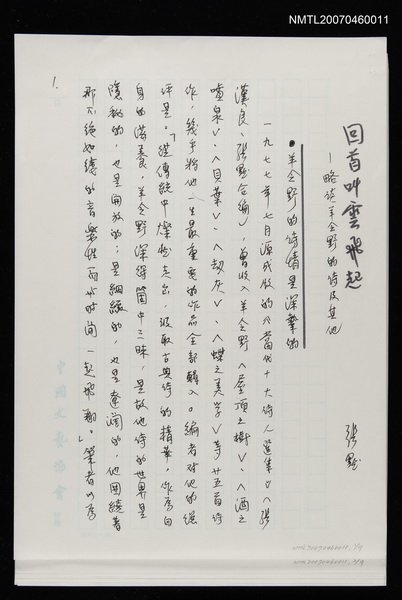 NMTL20070460011
1.
回首叫雲飛起
—略談羊令野的詩及其他
張默
●羊令野的詩情是深摯的
一九七七年七月源成版的《當代十大詩人選集》(張
漢良、張默合編),曾收入羊令野〈屋頂之樹〉、〈酒之
噴泉〉、〈貝葉〉、〈劫灰〉、〈蝶之美學〉等廿五首詩
作,幾乎將他一生最重要的作品全部輯入。編者對他的總
評是:「從傳統中燦然走出,汲取古典詩的精華,作為自
身的滋養,羊令野深得箇中三昧,是故他詩的世界是
隱秘的,也是開放的;是細緻的,也是遼闊的,他圍繞著
那不絕如縷的音樂性而與時間一起飛翔。」筆者以為
中國文藝協會
NMTL20070460011, 1/9
NMTL20070460011, 2/9